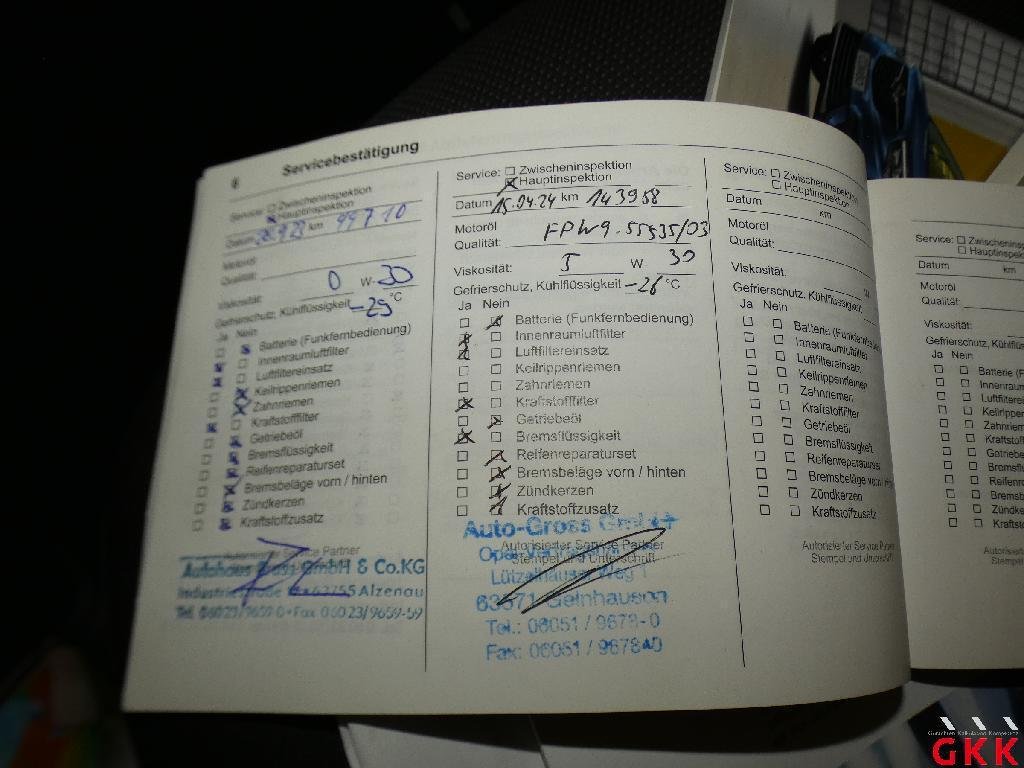 6 Servicebestätigung
Service: Zwischeninspektion
Hauptinspektion
Datum km 99710
Motoröl
Qualität:
Viskosität: 0 W- 30
Gefrierschutz, Kühlflüssigkeit -29 °C
Ja Nein
Batterie (Funkfernbedienung)
Innenraumluftfilter
Luftfiltereinsatz
Keilrippenriemen
Zahnriemen
Kraftstofffilter
Getriebeöl
Bremsflüssigkeit
Reifenreparaturset
Bremsbeläge vorn / hinten
Zündkerzen
Kraftstoffzusatz
Autorisierter Service Partner
Autohaus Gross GmbH & Co.KG
63755 Alzenau
Tel. 06023/9659-0 • Fax 06023/9659-59
Service: Zwischeninspektion
Hauptinspektion
Datum 15.04.24 km 143958
Motoröl
Qualität:
Viskosität: 5 W 30
Gefrierschutz, Kühlflüssigkeit -26 °C
Ja Nein
Batterie (Funkfernbedienung)
Innenraumluftfilter
Luftfiltereinsatz
Keilrippenriemen
Zahnriemen
Kraftstofffilter
Getriebeöl
Bremsflüssigkeit
Reifenreparaturset
Bremsbeläge vorn / hinten
Zündkerzen
Kraftstoffzusatz
Auto-Gross GmbH
Autorisierter Service Partner
Stempel und Unterschrift
Lützelhauser Weg 1
63571 Gelnhausen
Tel.: 06051 / 9678-0
Fax: 06051 / 967840
Service: Zwischeninspektion
Hauptinspektion
Datum km
Motoröl
Qualität:
Viskosität: W
Gefrierschutz, Kühlflüssigkeit
Ja Nein
Batterie (Funkfernbe
Innenraumluftfilter
Luftfiltereinsatz
Keilrippenriemen
Zahnriemen
Kraftstofffilter
Getriebeöl
Bremsflüssigkeit
Reifenreparaturset
Bremsbeläge vorn /
Zündkerzen
Kraftstoffzusatz
Autorisierter Service Partner
Stempel und Unterschrift
Service: Zwischeninsp
Hauptinspekt
Datum km
Motoröl
Qualität:
Viskosität:
Gefrierschutz, Kühlflüss
Ja Nein
Batterie (F
Innenraum
Luftfilterein
Keilrippe
Zahnriem
Kraftstoff
Getriebe
Bremsfl
Reifenre
Bremsb
Zündke
Kraftsto
Autorisier
Stempel
GKK